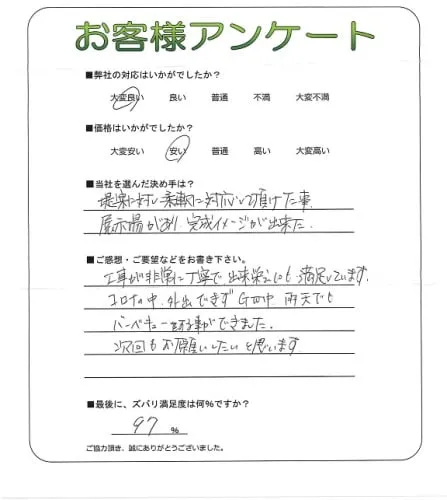 お客様アンケート
■弊社の対応はいかがでしたか?
大変良い 良い 普通 不満 大変不満
■価格はいかがでしたか?
大変安い 安い 普通 高い 大変高い
■当社を選んだ決め手は?
提案に対し柔軟に対応して頂けた事.
展示場があり完成イメージが出来た.
■ご感想・ご要望などをお書き下さい。
工事が非常に丁寧で出来栄にも満足しています.
コロナの中、外出できずGW中 雨天でも
バーベキューする事ができました.
次回もお願いしたいと思います.
■最後に、ズバリ満足度は何%ですか?
97 %
ご協力頂き、誠にありがとうございました。